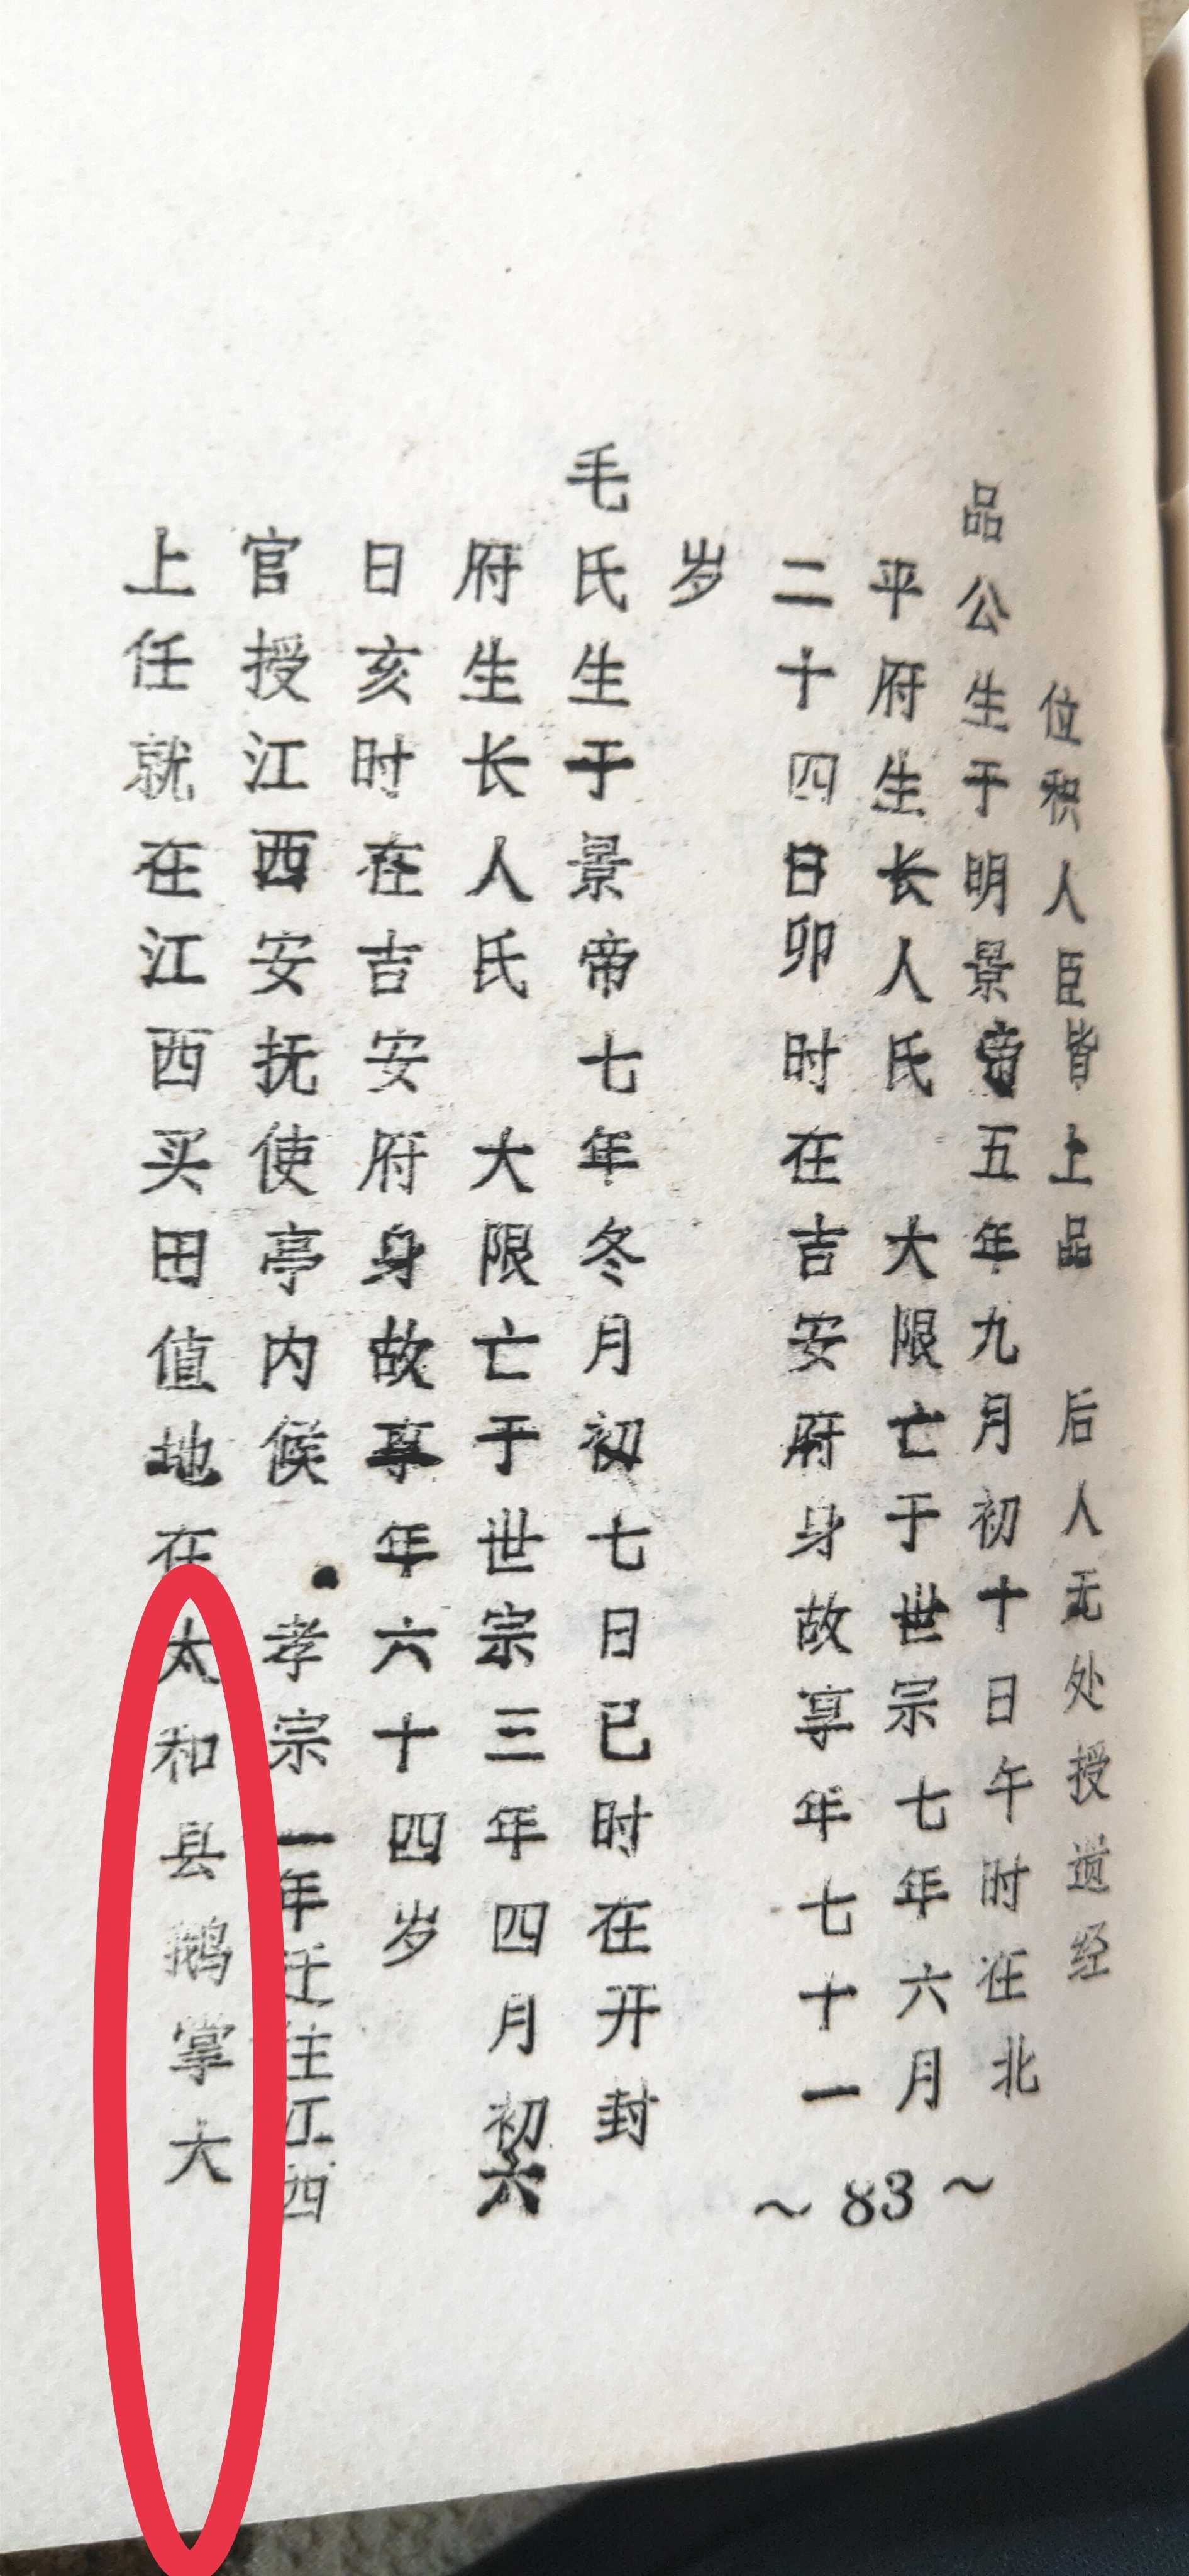 位积人臣皆上品 后人无处授道经
品公生于明景帝五年九月初十日午时在北
平府生长人氏 大限亡于世宗七年六月
二十四日卯时在吉安府身故享年七十一
岁
毛氏生于景帝七年冬月初七日已时在开封
府生长人氏 大限亡于世宗三年四月初六
日亥时在吉安府身故享年六十四岁
官授江西安抚使亭内候 孝宗一年迁住江西
上任就在江西买田值地在太和县鹅掌大
~83~